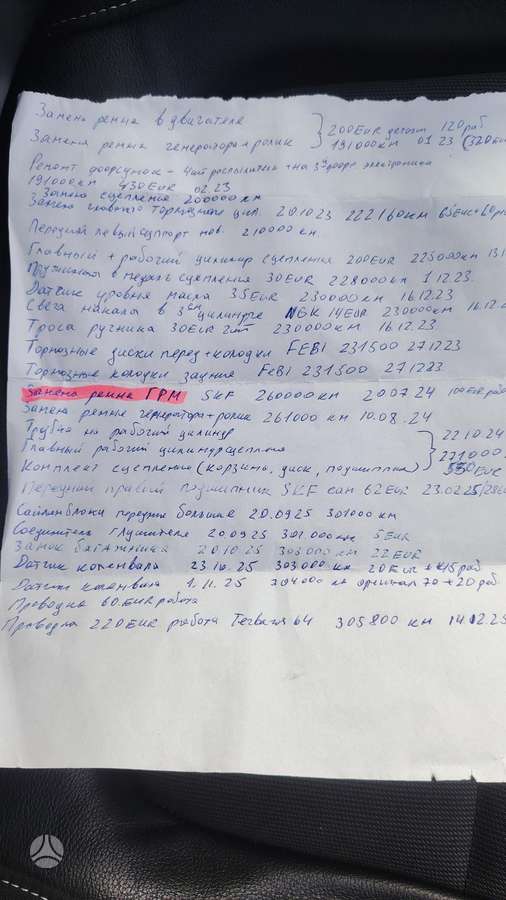 Замена ремня в двигателе
} 200EUR детали 120 раб
Замена ремня генератора + ролик 191000 км 01.23 (320EU
Ремонт форсунок - 4 шт распылители + на 3 электроника
191000 км 430EUR 02.23
Замена сцепления 200000 км
Замена главного тормозного цил. 20.10.23 222160 км 65EUR+60
Передний левый суппорт нов. 210000 км.
Главный + рабочий цилиндр сцепления 200EUR 225000 км
Пружинка в педаль сцепления 30EUR 228000 км 1.12.23.
Датчик уровня масла 35EUR 230000 км 16.12.23
Свеча накала в 3 цилиндре NGK 14EUR 230000 км 16.12.
Троса ручника 30EUR 2шт 230000 км 16.12.23.
Тормозные диски перед + колодки FEBI 231500 271223
Тормозные колодки задние FEBI 231500 271223
Замена ремня ГРМ SKF 260000 км 20.07.24 100EUR раб
Замена ремня генератора + ролик 261000 км 10.08.24
Трубка на рабочий цилиндр
Главный рабочий цилиндр сцепления } 22.10.24
271000
Комплект сцепления (корзина, диск, подшипник) 550EUR
Передний правый подшипник SKF сам 62EUR 23.02.25
Сайлентблоки передние большие 20.09.25 301000 км
Соединитель глушителя 20.09.25 301.000 км 5 EUR
Замок багажника 20.10.25 303000 км 22 EUR
Датчик коленвала 23.10.25 303000 км 20 EUR + раб
Датчик коленвала 1.11.25 304000 км оригинал 70 + 20 раб
Проводка 60.EUR работа
Проводка 220EUR работа 64 305800 км 14.12.25